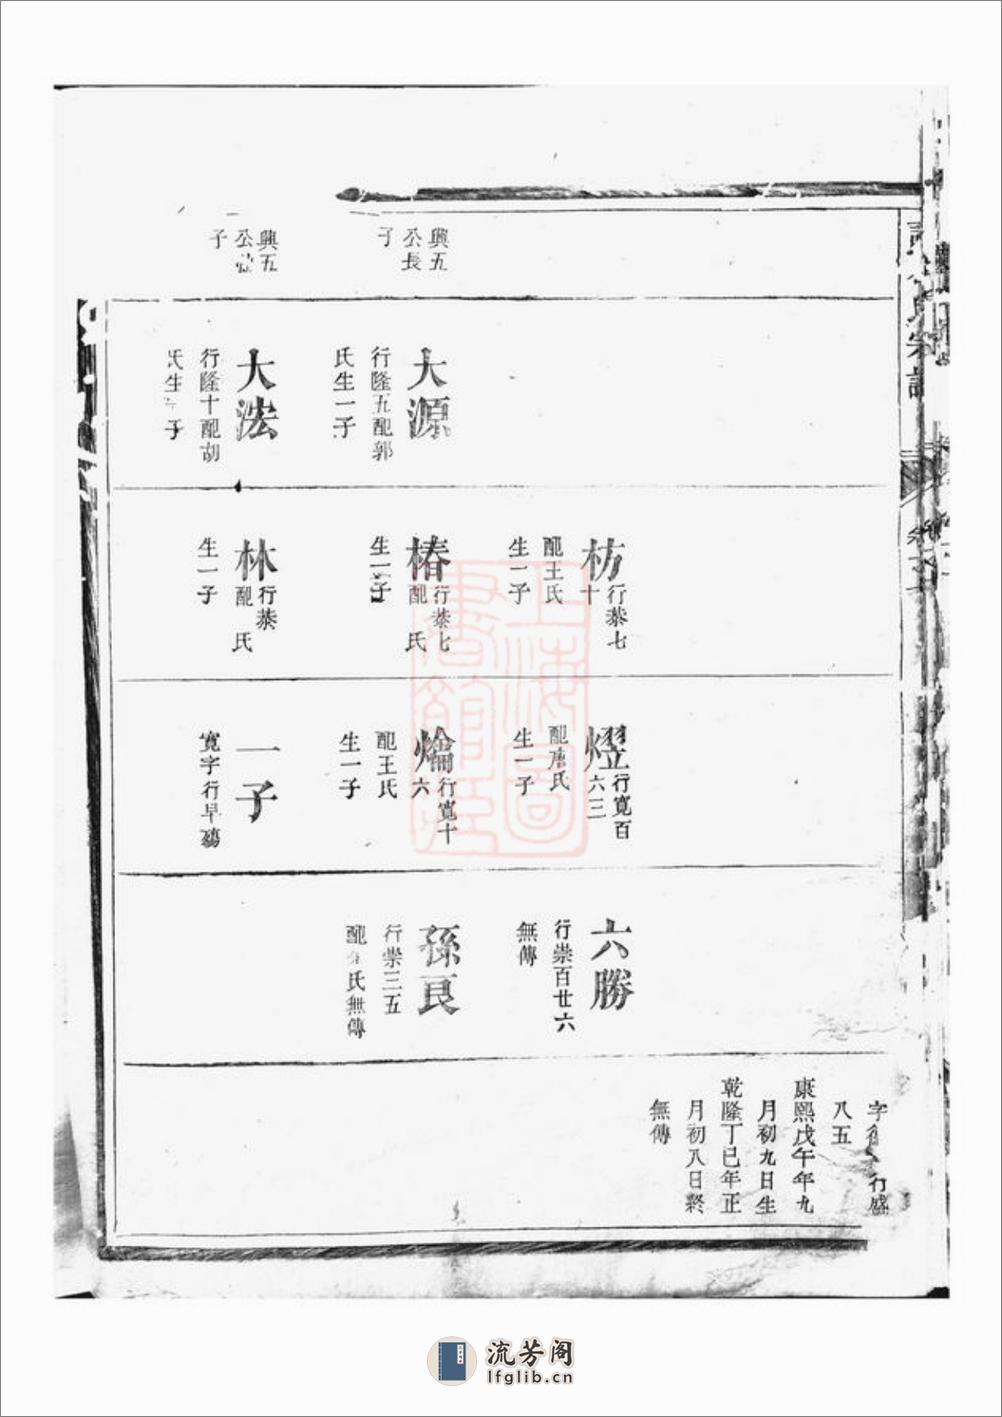 興五
公長
子
興五
公
子
大源
行隆五配郭
氏生一子
大法
行隆十配胡
氏生 子
枋
行恭七
十
配王氏
生一子
椿
行恭七
配 氏
生一子
林
行恭
配 氏
生一子
熤
行寬百
六三
配唐氏
生一子
爚
行寬十
六
配王氏
生一子
一子
寬字行早殤
六勝
行崇百廿六
無傳
孫良
行崇三五
配 氏無傳
字 行盛
八五
康熙戊午年九
月初九日生
乾隆丁巳年正
月初八日終
無傳
上海圖
書館藏
流芳阁
lfglib.cn